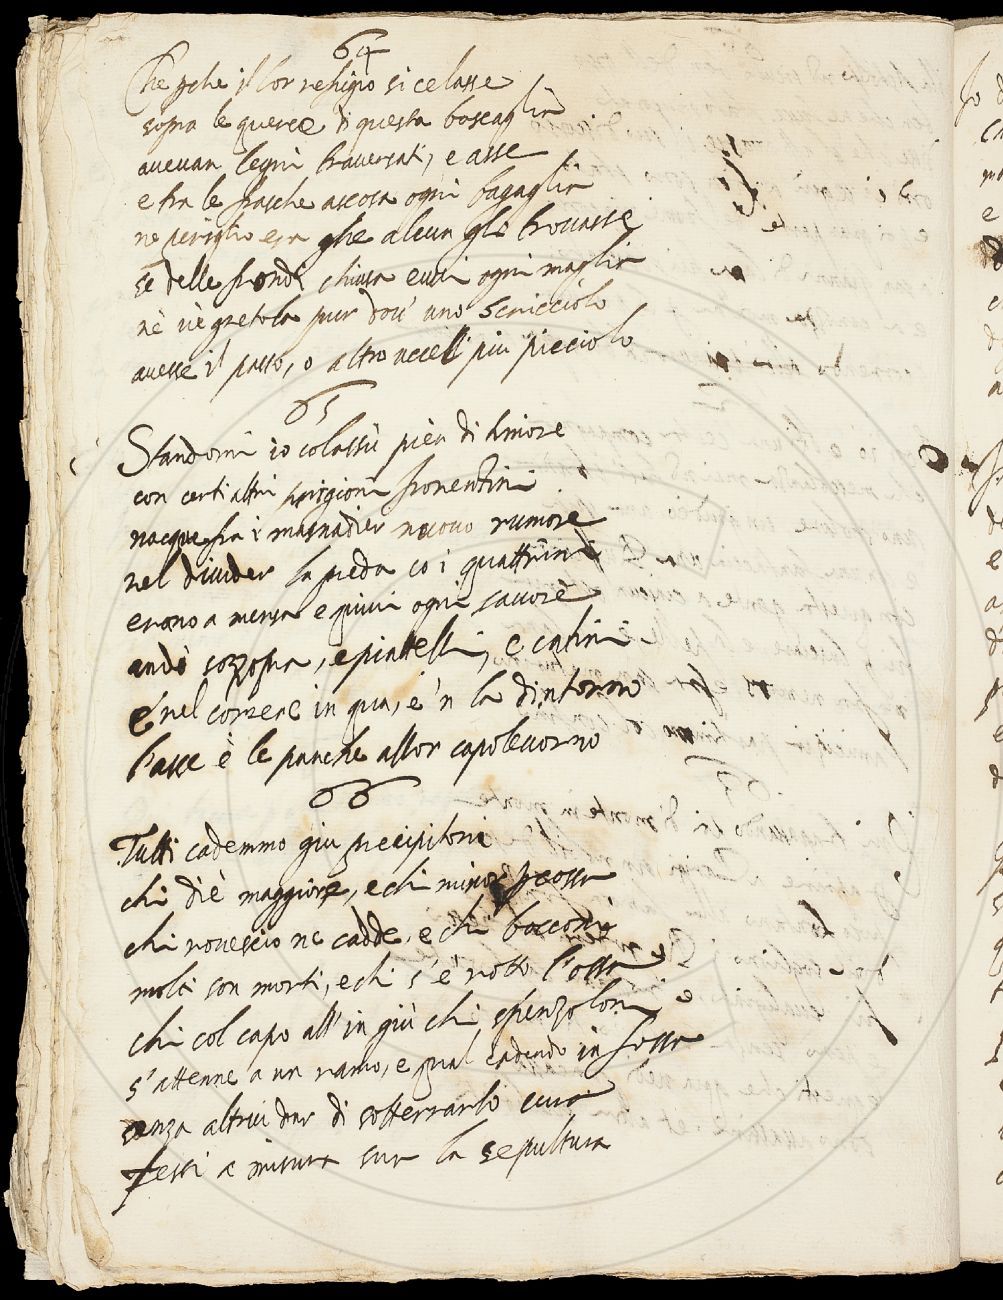 64
Che pche il lor refugio si celasse
sopra le querce di questa boscaglia
avevan legni traversati, e asse
e fra le frasche ascosa ogni bagaglia
ne periglio era che alcun gli trovasse
se delle frondi chiusa evvi ogni maglia
nè v'è gretola pur dov' uno scricciolo
avesse il passo, o altro uccell più picciolo
65
Standomi io colassù pien di timore
con certi altri prigioni fiorentini
nacque fra i masnadier nuovo rumore
nel divider la preda co i quattrini
erono a mensa e quivi ogni savore
andò sozzopra, e piattelli, e catini
e nel correre in qua, e 'n là dintorno
l'asse e le panche allor capolevorno
66
Tutti cademmo giu precipitoni
chi diè maggiore, e chi minor pcossa
chi rovescio ne cadde, e chi bocconi
molti son morti, e chi s'è rotto l'ossa
chi col capo all' in giù chi spenzoloni
s'attenne a un ramo, e qual cadendo in fossa
senza altrui dar di sotterrarlo cura
fessi a misura sua la sepultura